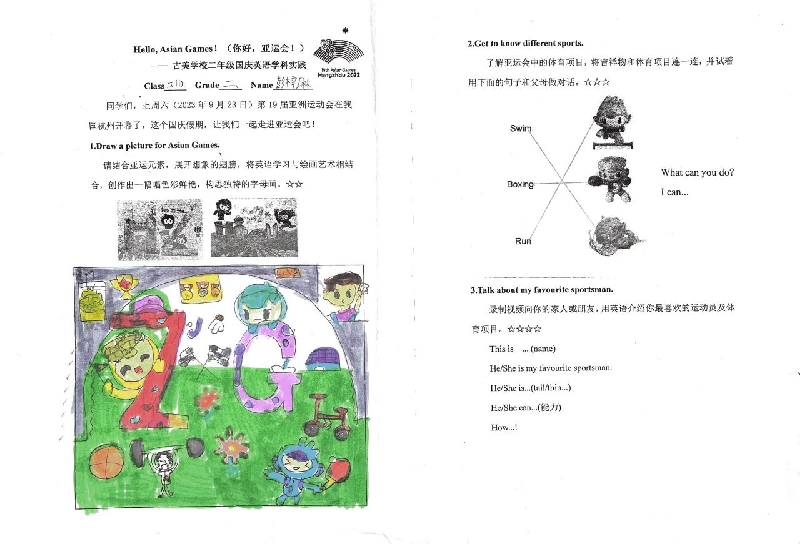 Hello, Asian Games! (你好，亚运会！)
—— 古美学校二年级国庆英语学科实践
19th Asian Games
Hangzhou 2022
Class 210 Grade 二 Name
同学们，上周六（2023年9月23日）第19届亚洲运动会在我
国杭州开幕了，这个国庆假期，让我们一起走进亚运会吧！
1.Draw a picture for Asian Games.
请结合亚运元素，展开想象的翅膀，将英语学习与绘画艺术相结
合，创作出一幅幅色彩鲜艳，构思独特的字母画。☆☆
G
2.Get to know different sports.
了解亚运会中的体育项目，将吉祥物和体育项目连一连，并试着
用下面的句子和父母做对话。☆☆☆
Swim
Boxing
Run
What can you do?
I can...
3.Talk about my favourite sportsman.
录制视频向你的家人或朋友，用英语介绍你最喜欢的运动员及体
育项目。☆☆☆☆
This is ... (name)
He/She is my favourite sportsman.
He/She is...(tall/thin...)
He/She can...(能力)
How...!